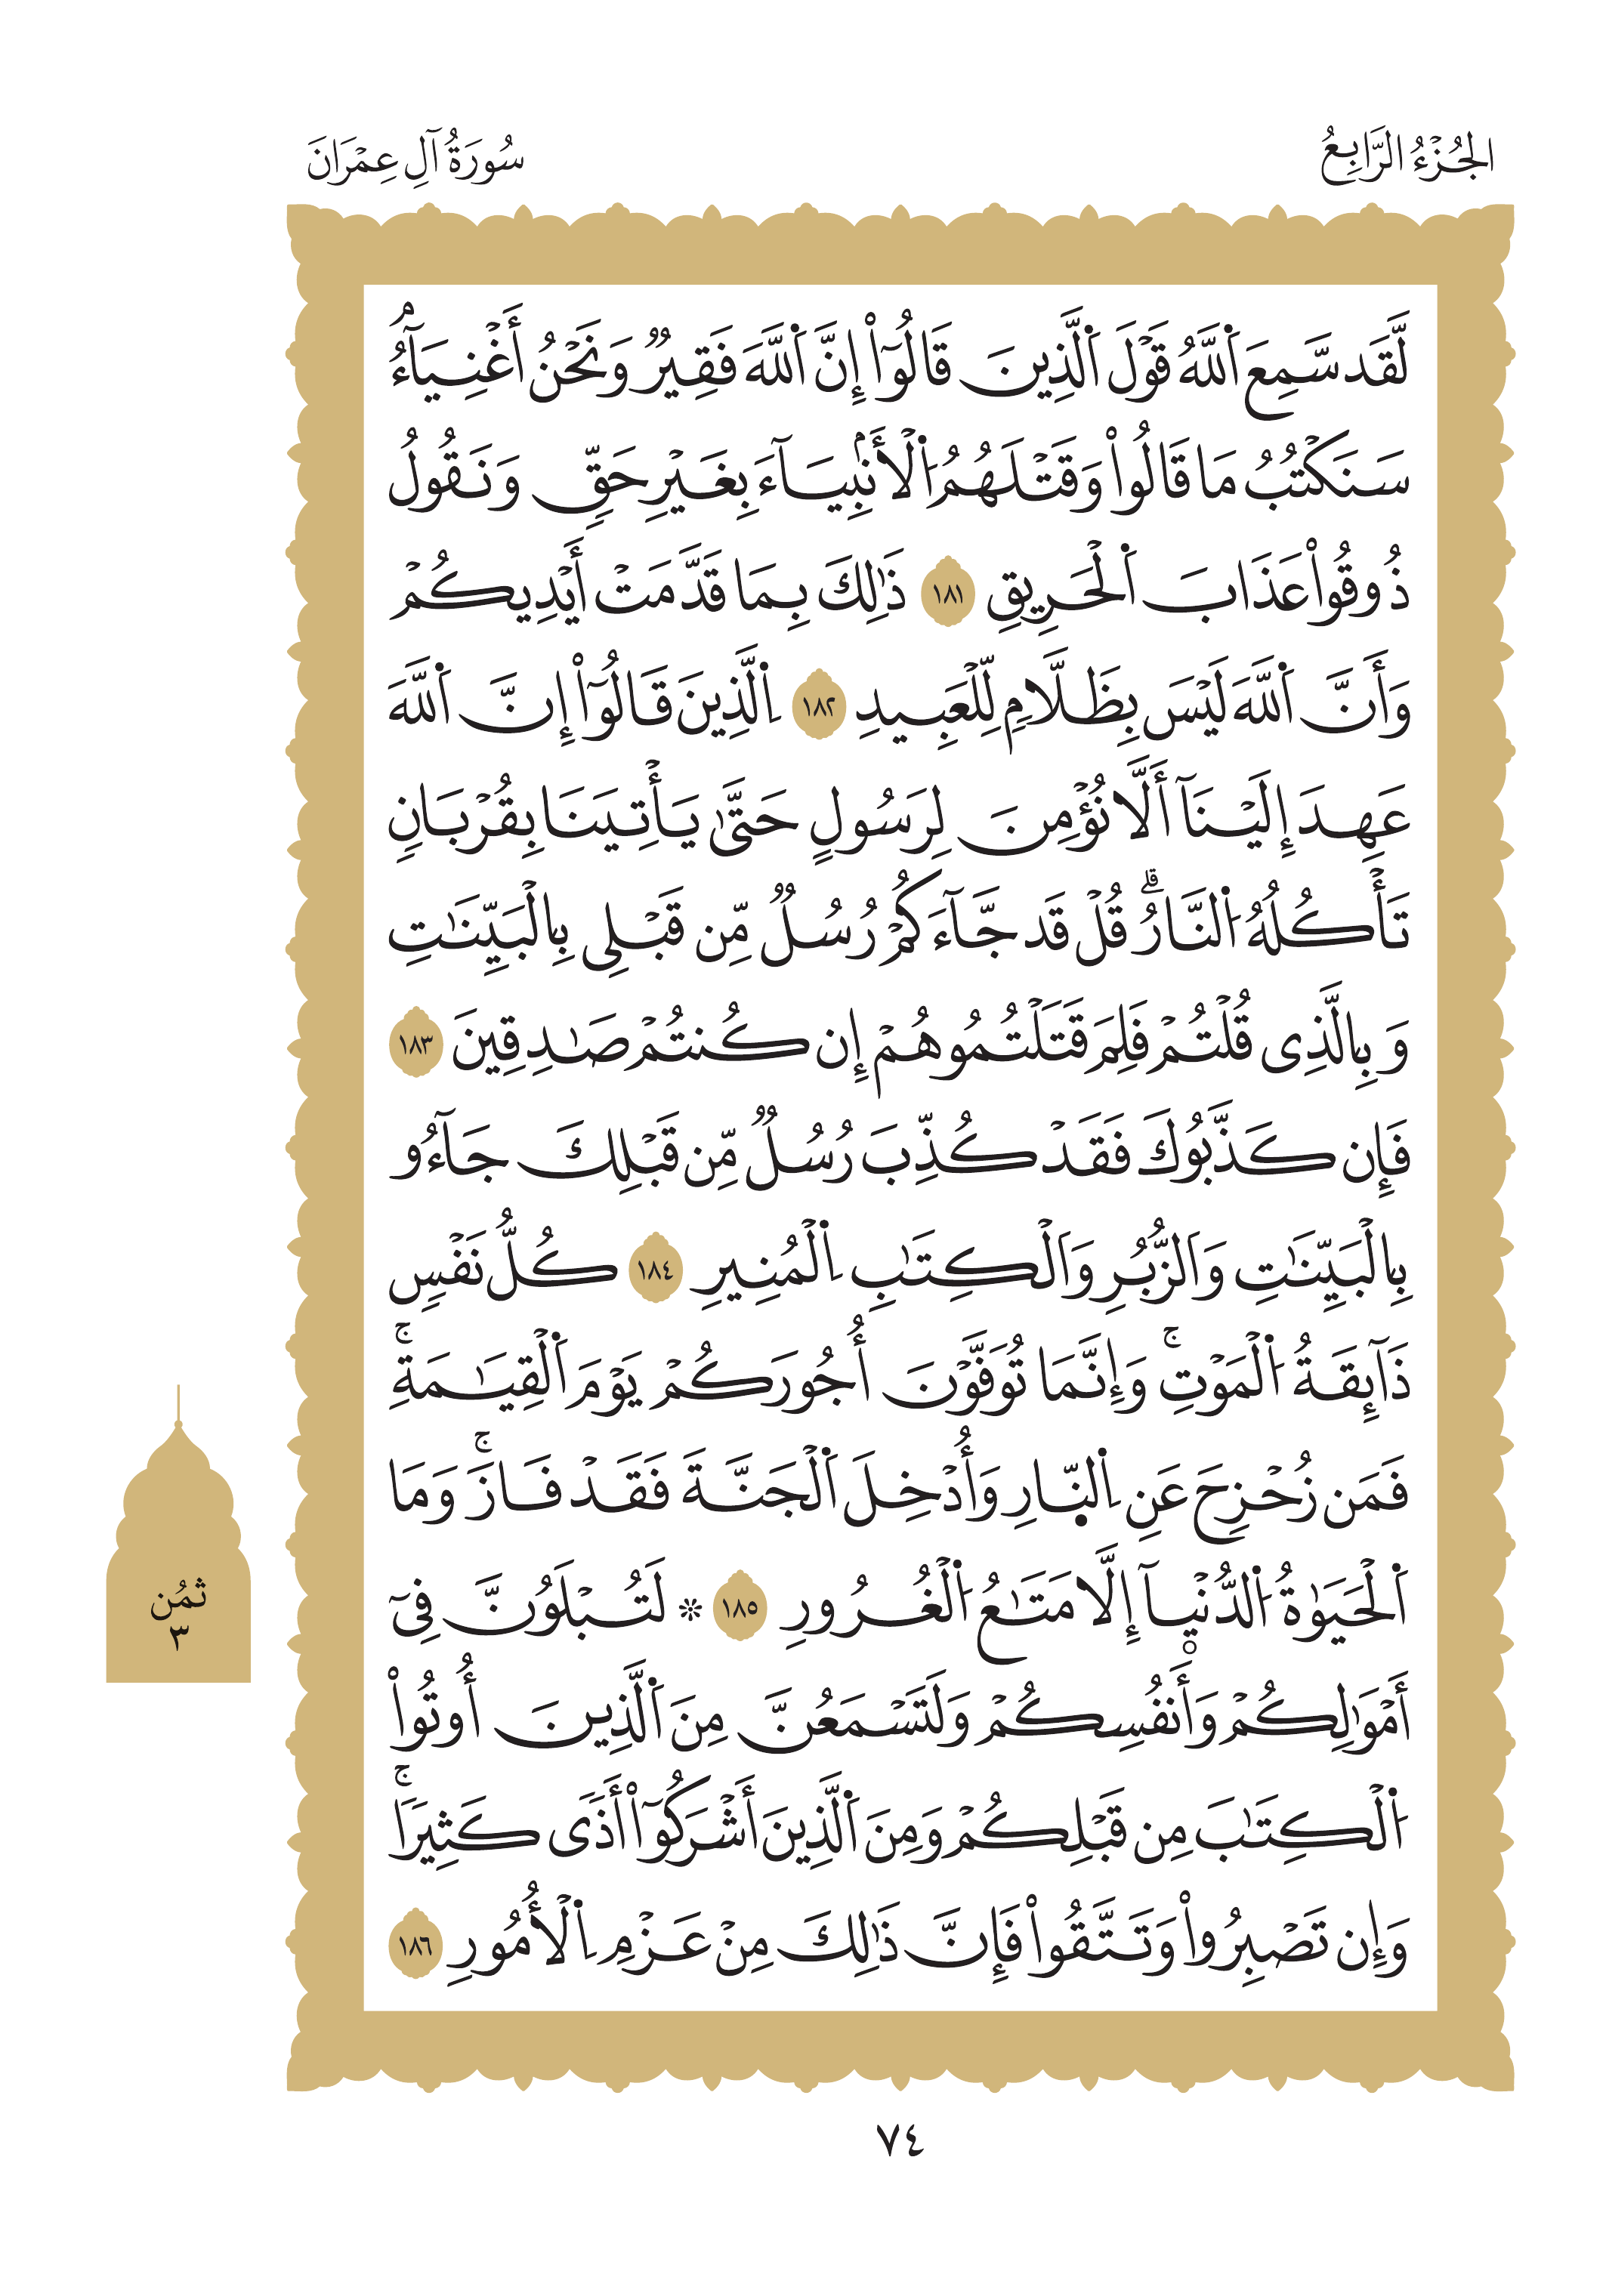 الجُزْءُ الرَّابِعُ
سُورَةُ آلِ عِمْرَانَ
لَّقَد سَّمِعَ اَ۬للَّهُ قَوْلَ اَ۬لَّذِينَ قَالُوٓاْ إِنَّ اَ۬للَّهَ فَقِيرٞ وَنَحْنُ أَغْنِيَآءُۘ
سَنَكْتُبُ مَا قَالُواْ وَقَتْلَهُمُ اُ۬لْأَنۢبِيَآءَ بِغَيْرِ حَقّٖ وَنَقُولُ
ذُوقُواْ عَذَابَ اَ۬لْحَرِيقِ ١٨١ ذَٰلِكَ بِمَا قَدَّمَتْ أَيْدِيكُمْ
وَأَنَّ اَ۬للَّهَ لَيْسَ بِظَلَّامٖ لِّلْعَبِيدِ ١٨٢ اِ۬لَّذِينَ قَالُوٓاْ إِنَّ اَ۬للَّهَ
عَهِدَ إِلَيْنَآ أَلَّا نُؤْمِنَ لِرَسُولٍ حَتَّىٰ يَأْتِيَنَا بِقُرْبَانٖ
تَأْكُلُهُ اُ۬لنَّارُۗ قُلْ قَد جَّآءَكُمْ رُسُلٞ مِّن قَبْلِى بِالْبَيِّنَٰتِ
وَبِالَّذِى قُلْتُمْ فَلِمَ قَتَلْتُمُوهُمْ إِن كُنتُمْ صَٰدِقِينَ ١٨٣
فَإِن كَذَّبُوكَ فَقَدْ كُذِّبَ رُسُلٞ مِّن قَبْلِكَ جَآءُو
بِالْبَيِّنَٰتِ وَالزُّبُرِ وَالْكِتَٰبِ اِ۬لْمُنِيرِ ١٨٤ كُلُّ نَفْسٖ
ذَآئِقَةُ اُ۬لْمَوْتِۚ وَإِنَّمَا تُوَفَّوْنَ أُجُورَكُمْ يَوْمَ اَ۬لْقِيَٰمَةِۚ
فَمَن زُحْزِحَ عَنِ اِ۬لنّ۪ارِ وَأُدْخِلَ اَ۬لْجَنَّةَ فَقَدْ فَازَۚ وَمَا
اَ۬لْحَيَوٰةُ اُ۬لدُّنْي۪آ إِلَّا مَتَٰعُ اُ۬لْغُرُورِ ١٨٥ ۞ لَتُبْلَوُنَّ فِىٓ
أَمْوَٰلِكُمْ وَأَنفُسِكُمْ وَلَتَسْمَعُنَّ مِنَ اَ۬لَّذِينَ أُوتُواْ
اُ۬لْكِتَٰبَ مِن قَبْلِكُمْ وَمِنَ اَ۬لَّذِينَ أَشْرَكُوٓاْ أَذٗى كَثِيرٗاۚ
وَإِن تَصْبِرُواْ وَتَتَّقُواْ فَإِنَّ ذَٰلِكَ مِنْ عَزْمِ اِ۬لْأُمُورِ ١٨٦
ثمُن
٣
٧٤